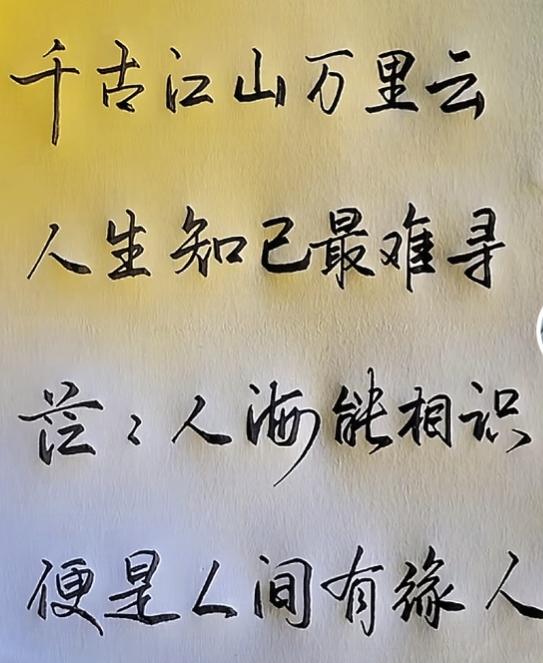 千古江山万里云
人生知己最难寻
茫々人海能相识
便是人间有缘人